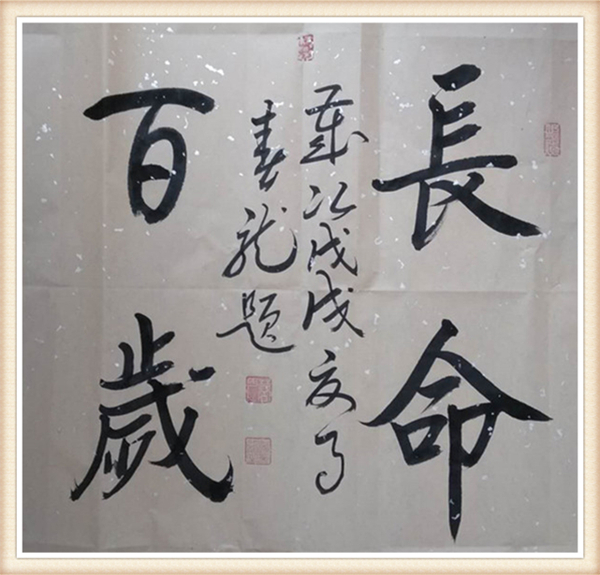 長命
百歲
歲次戊戌夏月
春龍題